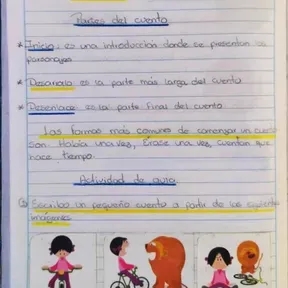 Partes del cuento
* Inicio: es una introducción donde se presentan los
personajes
* Desarrollo es la parte más larga del cuento
* Desenlace: es la parte final del cuento
Las formas más comunes de comenzar un cuento
son: Había una vez, Érase una vez, cuentan que
hace tiempo.
Actividad de guía
Escriba un pequeño cuento a partir de las siguientes
imágenes